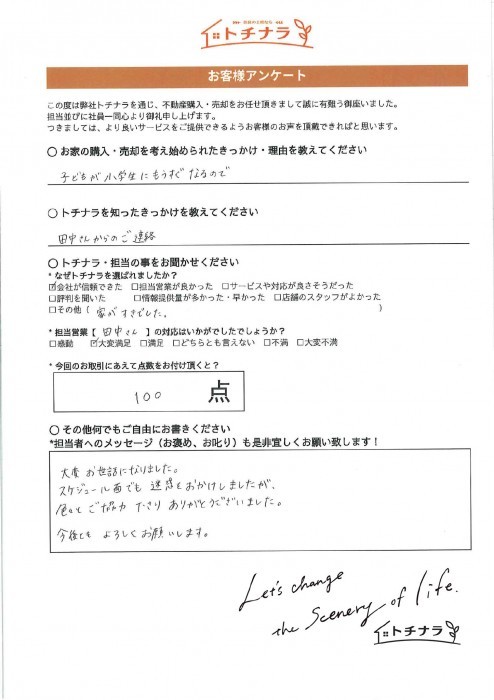 トチナラ
お客様アンケート
この度は弊社トチナラを通じ、不動産購入・売却をお任せ頂きまして誠に有難う御座いました。
担当並びに社員一同心より御礼申し上げます。
つきましては、より良いサービスをご提供できるようお客様のお声を頂戴できればと思います。
〇 お家の購入・売却を考え始められたきっかけ・理由を教えてください
子どもが小学生にもうすぐなるので
〇 トチナラを知ったきっかけを教えてください
田中さんからのご連絡
〇 トチナラ・担当の事をお聞かせください
* なぜトチナラを選ばれましたか？
☑会社が信頼できた □担当営業が良かった □サービスや対応が良さそうだった
□評判を聞いた □情報提供量が多かった・早かった □店舗のスタッフがよかった
□その他（ 家がすきでした。 ）
* 担当営業【 田中さん 】の対応はいかがでしたでしょうか？
□感動 ☑大変満足 □満足 □どちらとも言えない □不満 □大変不満
* 今回のお取引にあえて点数をお付け頂くと？
100 点
〇 その他何でもご自由にお書きください
*担当者へのメッセージ（お褒め、お叱り）も是非宜しくお願い致します！
大変お世話になりました。
スケジュール面でも迷惑をおかけしましたが、
色々とご協力下さりありがとうございました。
今後ともよろしくお願いします。
Let's change
the Scenery of life.
トチナラ